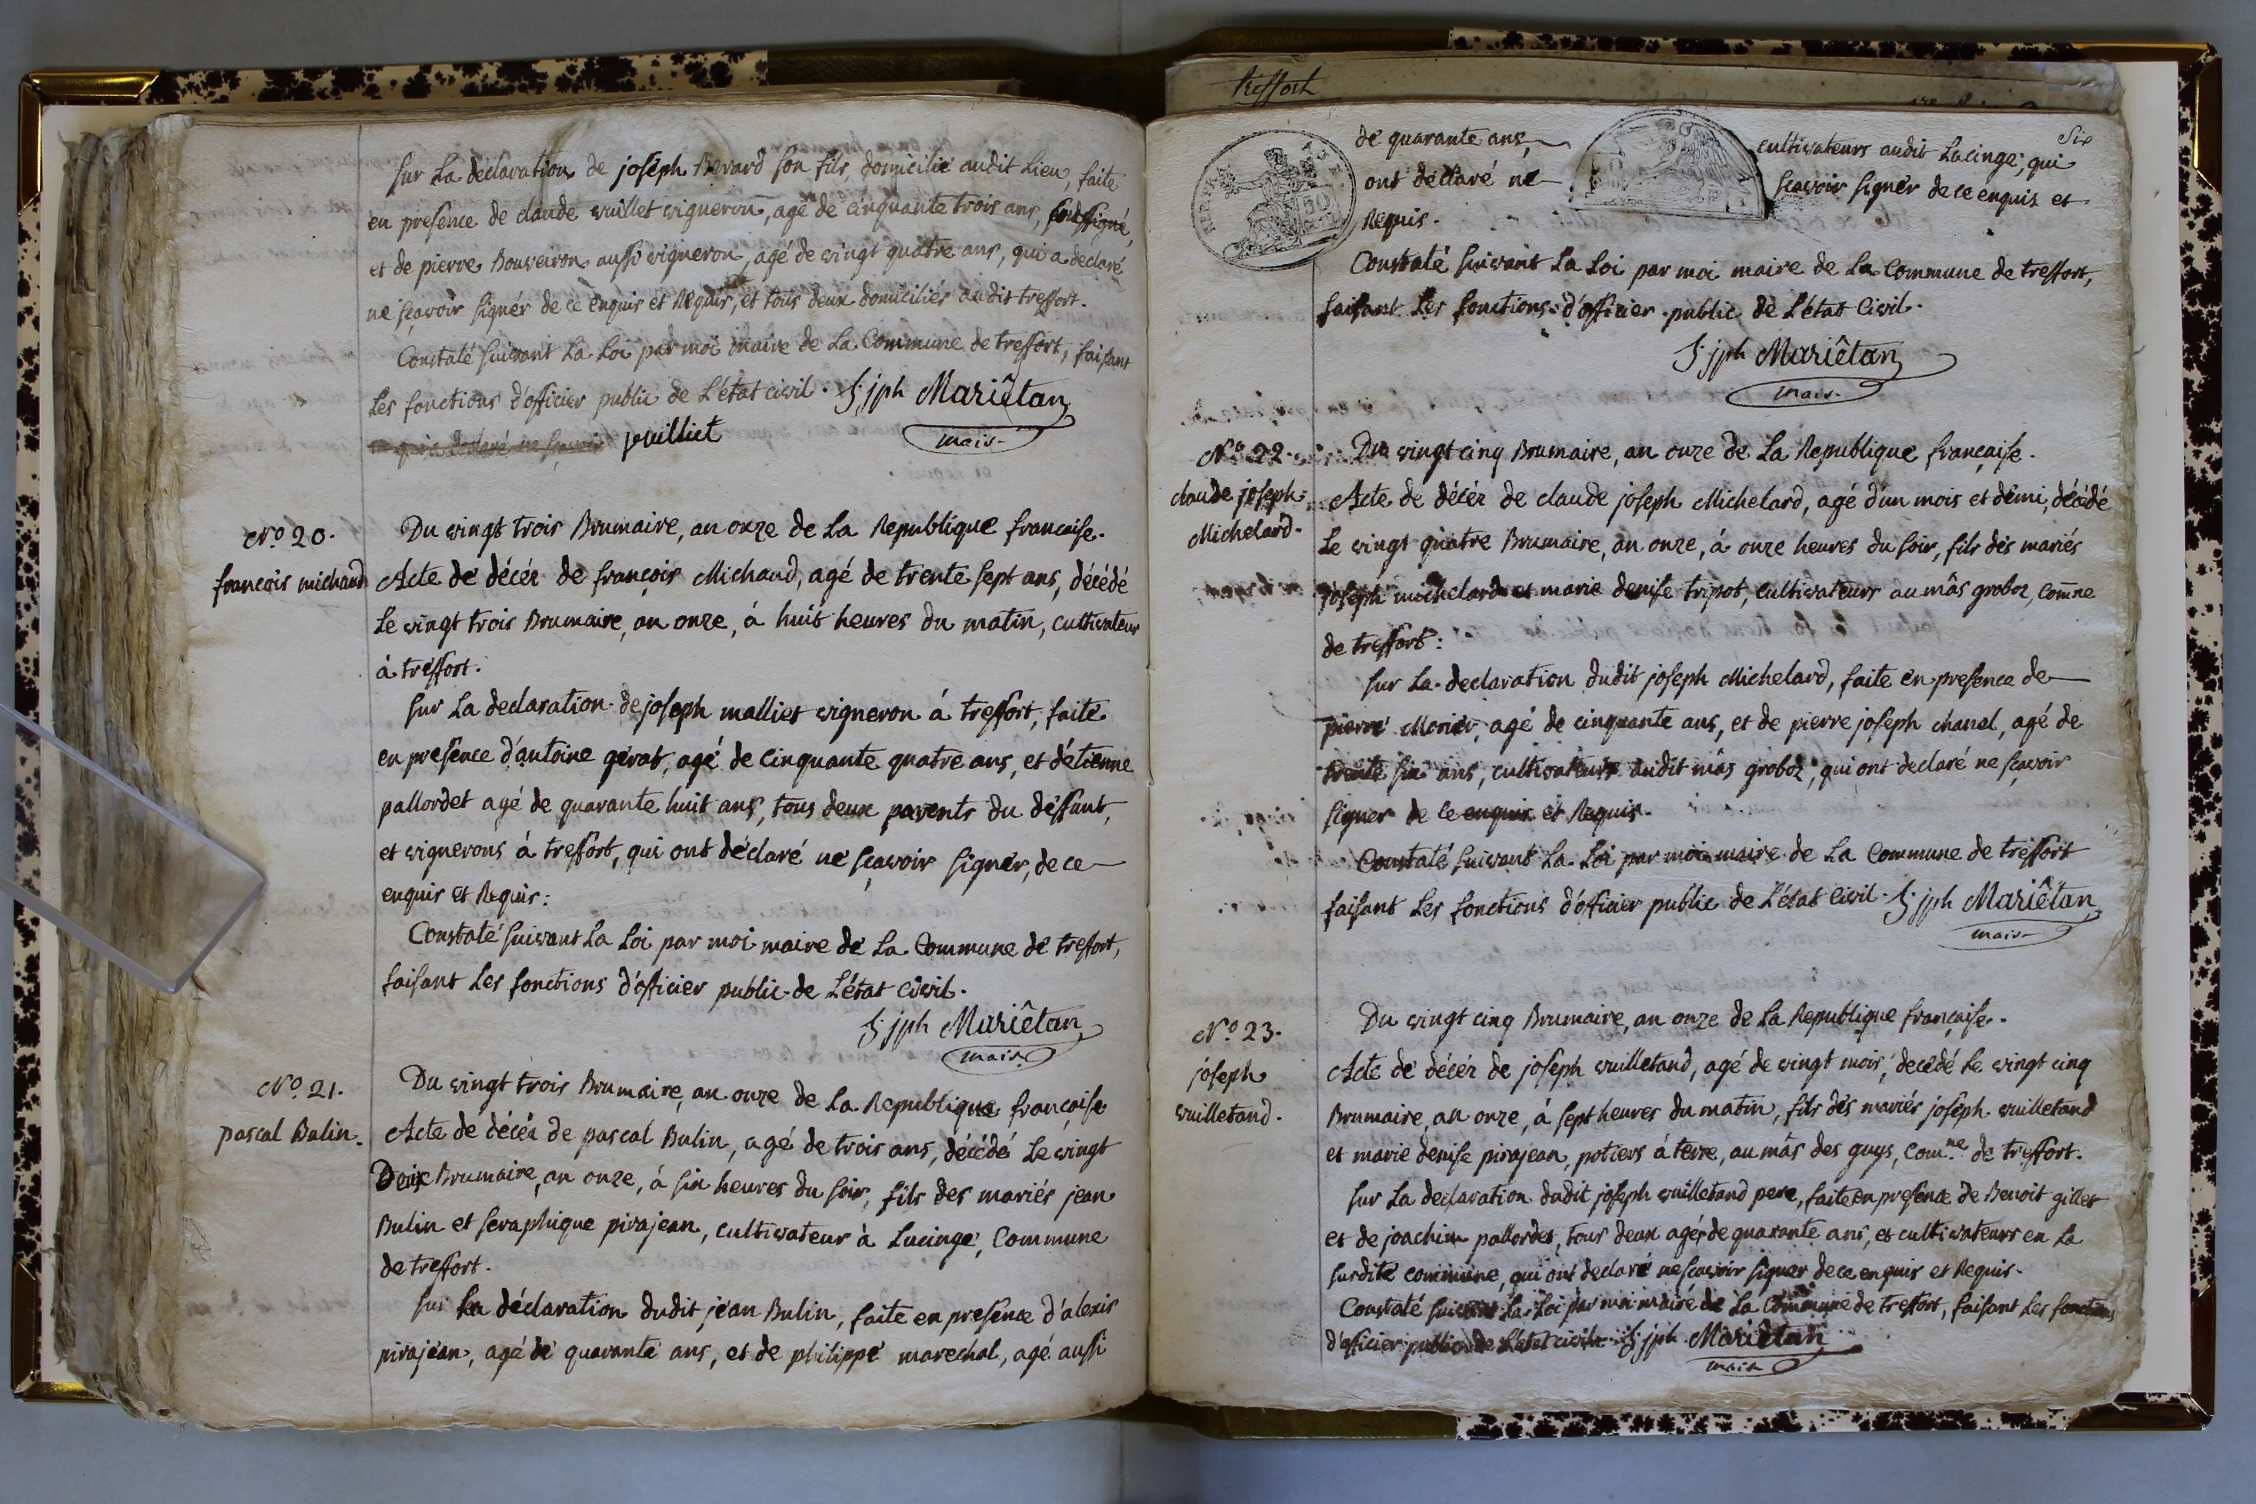 sur La déclaration de joseph Bevard son fils, domicilié audit Lieu, faite
en presence de claude vuillet vigneron, agé de cinquante trois ans, soussigné,
et de pierre Bouveiron aussi vigneron, agé de vingt quatre ans, qui a déclaré
ne sçavoir signér de ce enquis et Requis, et tous deux domiciliés audit treffort.
Constaté suivant La Loi par moi maire de La Commune de treffort, faisant
Les fonctions d'officier public de L'état civil. jph Mariêtan
qui a declaré ne sçavoir vuilliet maire
No. 20.
françois michaud
Du vingt trois Brumaire, an onze de La Republique francaise.
Acte de décéz de françois Michaud, agé de trente sept ans, décédé
Le vingt trois Brumaire, an onze, á huit heures du matin, cultivateur
á treffort.
sur La declaration de joseph malliet vigneron á treffort, faite
en presence d'antoine gérat, agé de cinquante quatre ans, et d'étienne
pallordet agé de quarante huit ans, tous deux parents du déffunt,
et vignerons á treffort, qui ont déclaré ne sçavoir signér, de ce
enquis et Requis:
Constaté suivant La Loi par moi maire de La Commune de treffort,
faisant Les fonctions d'officier public de L'état civil.
jph Mariêtan
maire
No. 21.
pascal Bulin.
Du vingt trois Brumaire, an onze de La Republique françaïse
Acte de décéz de pascal Bulin, agé de trois ans, décédé Le vingt
Deux Brumaire, an onze, á six heures du soir, fils des mariés jean
Bulin et seraphique pirajean, cultivateur à Lucinge, Commune
de treffort.
sur La déclaration dudit jean Bulin, faite en presence d'alexis
pirajean, agé de quarante ans, et de philippe marechal, agé aussi
treffort
Six
de quarante ans, cultivateurs audit Lucinge, qui
ont déclaré ne sçavoir signer de ce enquis et
Requis.
Constaté suivant La Loi par moi maire de La Commune de treffort,
faisant Les fonctions d'officier public de L'état Civil.
jph Mariêtan
maire
No. 22.
claude joseph
Michelard.
Du vingt cinq Brumaire, an onze de La Republique française.
Acte de décéz de claude joseph Michelard, agé d'un mois et demi, décédé
Le vingt quatre Brumaire, an onze, á onze heures du soir, fils des mariés
joseph michelard et marie denise tripot, cultivateurs au mâs groboz, Comne
de treffort:
sur La declaration dudit joseph Michelard, faite en presence de
pierre Morier, agé de cinquante ans, et de pierre joseph chanel, agé de
trente six ans, cultivateurs audit mâs groboz, qui ont declaré ne sçavoir
signer de ce enquis et Requis.
Constaté suivant La Loi par moi maire de La Commune de treffort
faisant Les fonctions d'officier public de L'état Civil. jph Mariêtan
maire
No. 23.
joseph
vuilletand.
Du vingt cinq Brumaire, an onze de La Republique française.
Acte de décéz de joseph vuilletand, agé de vingt mois, decédé Le vingt cinq
Brumaire, an onze, á sept heures du matin, fils des mariés joseph vuilletand
et marie denise pirajean, potiers á terre, au mâs des guys, Com.ne de treffort.
sur La declaration dudit joseph vuilletand pere, faite en presence de Benoit gillet
et de joachim pallordet, tous deux agés de quarante ans, et cultivateurs en La
susdite commune, qui ont declaré ne sçavoir signer de ce enquis et Requis.
Constaté suivant La Loi par moi maire de La Commune de treffort, faisant Les fonctions
d'officier public de L'état civil. jph Mariêtan
maire